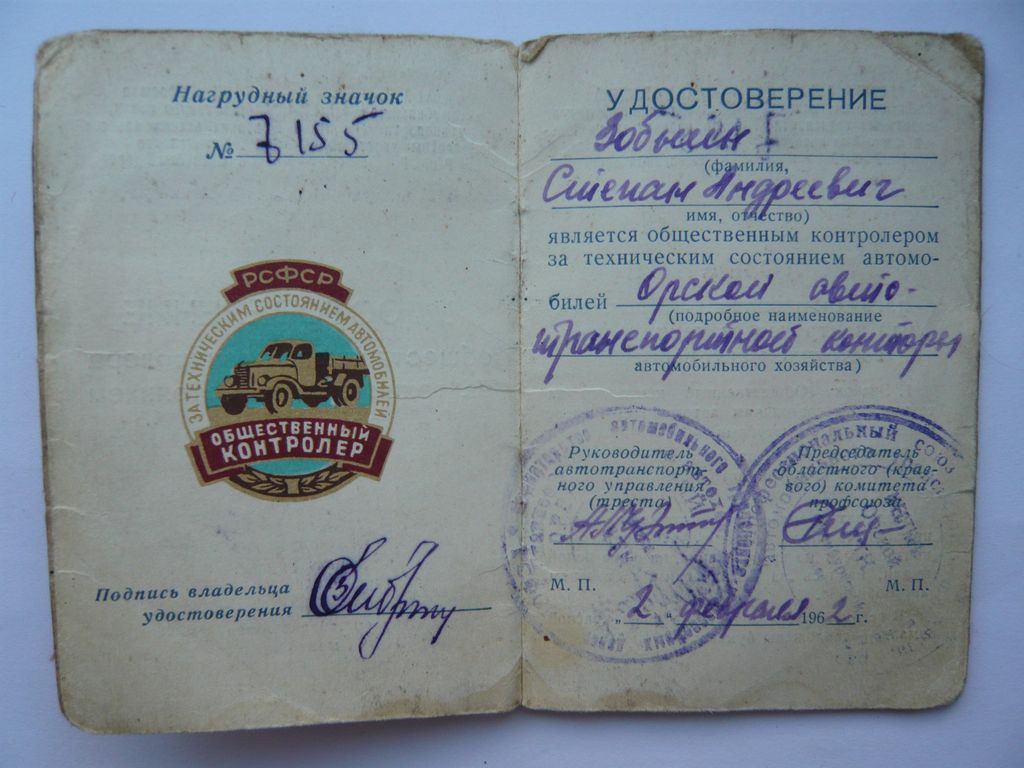 Нагрудный значок
№ 7155
РСФСР
ЗА ТЕХНИЧЕСКИМ СОСТОЯНИЕМ АВТОМОБИЛЕЙ
ОБЩЕСТВЕННЫЙ
КОНТРОЛЕР
Подпись владельца
удостоверения
УДОСТОВЕРЕНИЕ
(фамилия,
Степан Андреевич
имя, отчество)
является общественным контролером
за техническим состоянием автомо-
билей Орской авто-
(подробное наименование
транспортной конторы
автомобильного хозяйства)
Руководитель
автотранспорт-
ного управления
(треста)
Председатель
областного (крае-
вого) комитета
профсоюза
М. П.
М. П.
„2" февраля 1962 г.